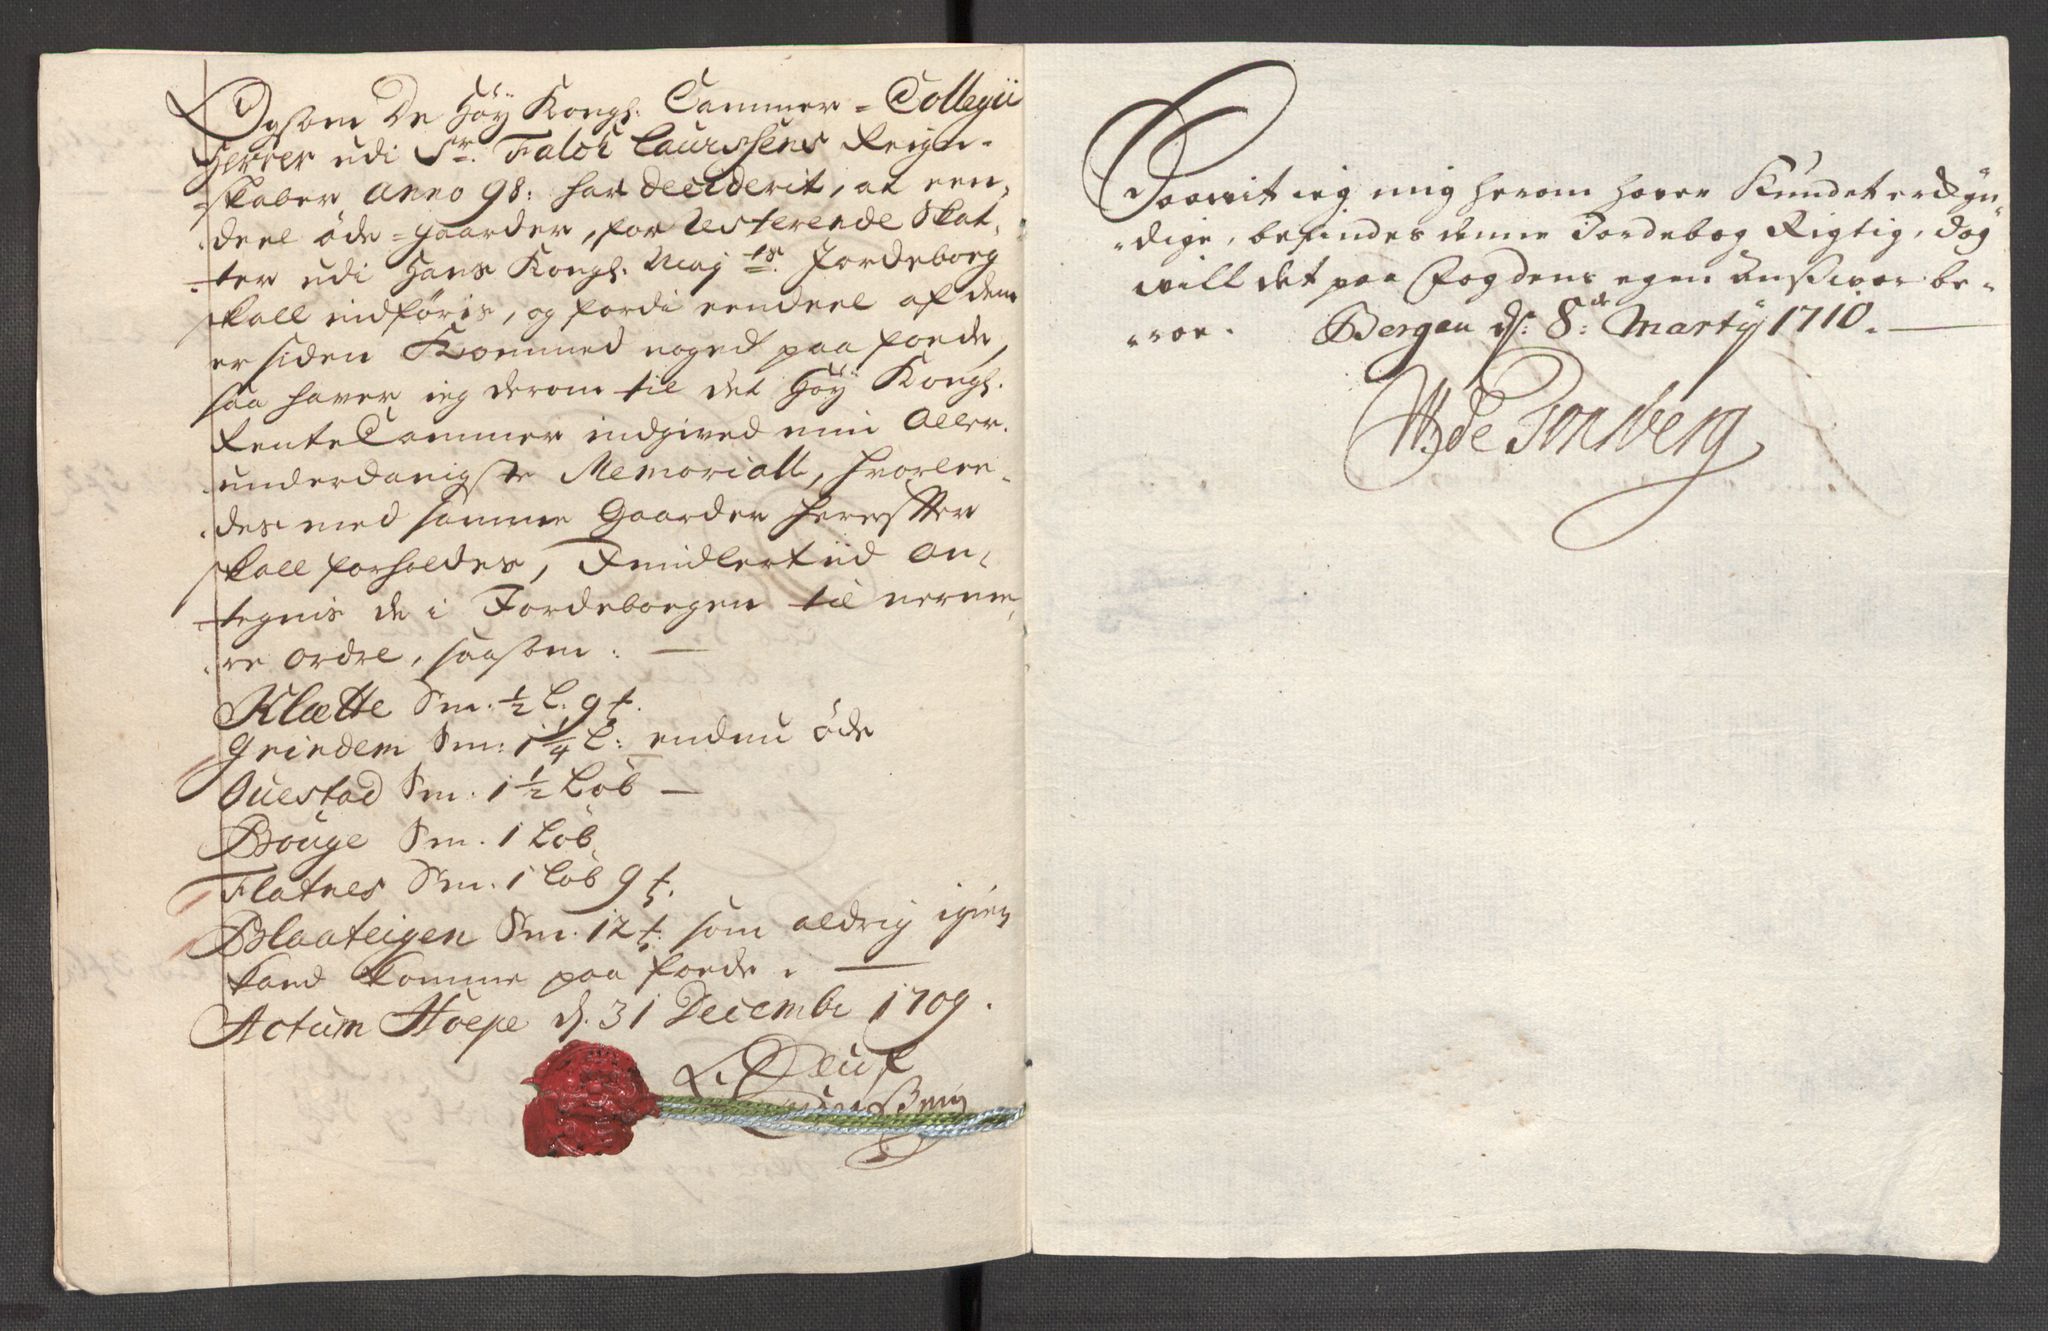 Ogsom De Høy Kongl. Cammer-Collegii
Herrer udi Sr. Falck Laurssens Reign-
skaber Anno 98: har decideret, at een-
deel øde-gaarder, for resterende Skat-
ter udi Hans Kongl. Mayts. Jordeboeg
skall indføris, og fordi eendeel af dem
er siden Kommed noged paa foede,
saa haver ieg derom til det Høy Kongl.
RenteCammer indgived min Aller-
underdanigste Memoriall, hvorlee-
des med samme Gaarder herefter
skall forholdes, Imidlertiid an-
tegnis de i Jordeboegen til nerme-
re ordre, saasom:
Klætte Sm. ½ L: 9 t.
Grindem Sm: 1¼ L: endnu øde
Questad Sm. 1½ Løb
Bouge Sm. 1 Løb
Flatnes Sm. 1 Løb 9 t.
Blaateigen Sm. 12 t: som aldrig igien
kand komme paa foede.
Actum Hope d. 31 Decembr 1709.
Saavit ieg mig herom haver Kundet erkyn-
dige, befindes denne Jordebog Rigtig, dog
will det paa Fogdens egen ansvar be-
roe. Bergen d. 8de Martij 1710.
W de Tonsberg